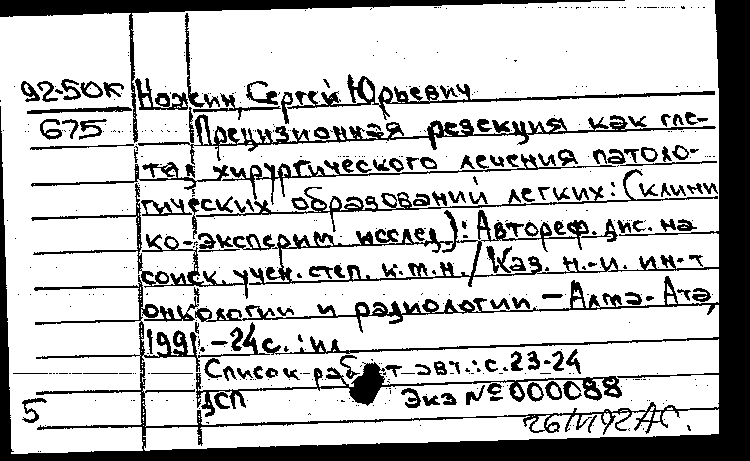 92-50К Ножкин, Сергей Юрьевич
675 Прецизионная резекция как ме-
тод хирургического лечения патоло-
гических образований легких: (клини
ко-эксперим. исслед.): Автореф. дис. на
соиск. учен. степ. к.м.н. / Каз. н.-и. ин-т
онкологии и радиологии. — Алма-Ата,
1991. — 24 с. : ил
Список работ авт.: с. 23-24
ДСП Экз № 000088
5